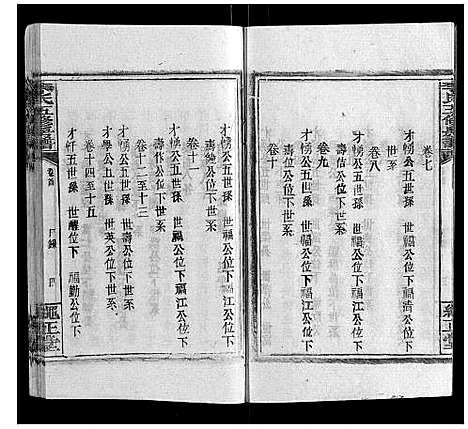 卷七
才憫公五世孫 世福公位下福清公位下
世系
卷八
才憫公五世孫 世福公位下福江公位下
壽佑公位下世系
卷九
才憫公五世孫 世福公位下福江公位下
卷十
壽純公位下世系
卷十一
才憫公五世孫 世福公位下福江公位下
壽作公位下世系
卷十二至十三
才憫公五世孫 世壽公位下世系
才學公五世孫 世英公位下世系
卷十四至十五
才忏五世孫 世醒位下 福勤公位下
氏五修族譜
卷首
目錄
四
正堂